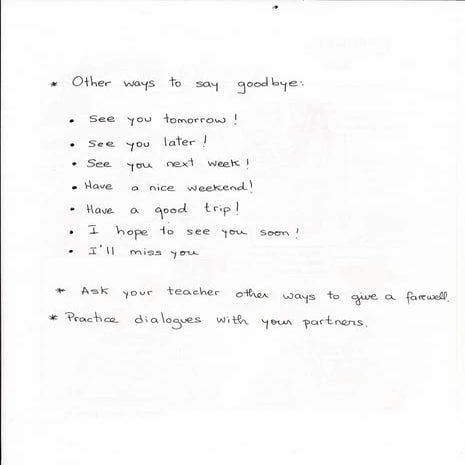 * Other ways to say goodbye:
• See you tomorrow!
• See you later!
• See you next week!
• Have a nice weekend!
• Have a good trip!
• I hope to see you soon!
• I'll miss you
* Ask your teacher other ways to give a farewell.
* Practice dialogues with your partners.